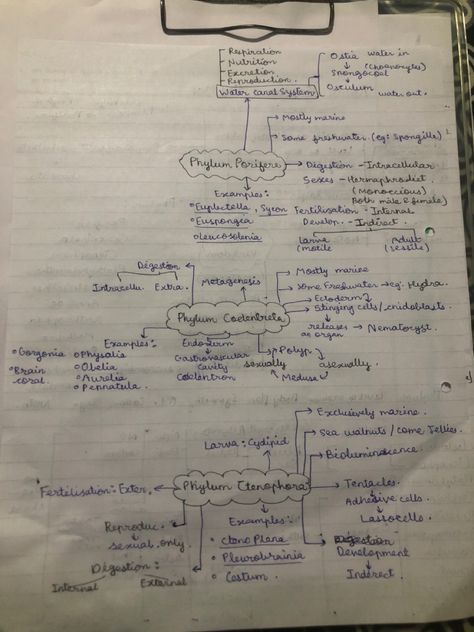 Respiration
Nutrition
Excretion
Reproduction.
Water Canal System
Ostia water in
(Choanocytes)
Spongocoel
Osculum
water out.
Mostly marine
Some freshwater (eg: Spongilla)
Phylum Porifera
Digestion - Intracellular
Sexes - Hermaphrodiet
(Monoccious)
Both male & female)
Examples:
Euplectella, Sycon
Euspongea
Leucosolenia
Fertilisation - Internal
Develop. - Indirect.
Larva
(motile
Adult
(sessile)
Digestion
Intracellu.
Extra.
Metagenesis
Mostly marine
Some Freshwater → eg: Hydra.
Ectoderm
Stinging cells/cnidoblasts
releases → Nematocyst.
an organ
Phylum Coelentrela
Examples:
Gorgonia
Brain
coral.
Physalis
Obelia
Aurelia
Pennatula.
Endoderm
Gastrovascular
cavity
Coelentron
Polyp
sexually
asexually.
Medusa
Exclusively marine.
Sea walnuts/come Jellies.
Bioluminiscence
Larva: Cydipid
Phylum Ctenophora
Fertilisation: Exter.
Reproduc.
sexual only
Digestion:
Internal
External
Examples:
Ctenoplana
Pleurobrainia
Cestum.
Tentacles
Adhesive cells.
Lassocells
Development
Indirect.